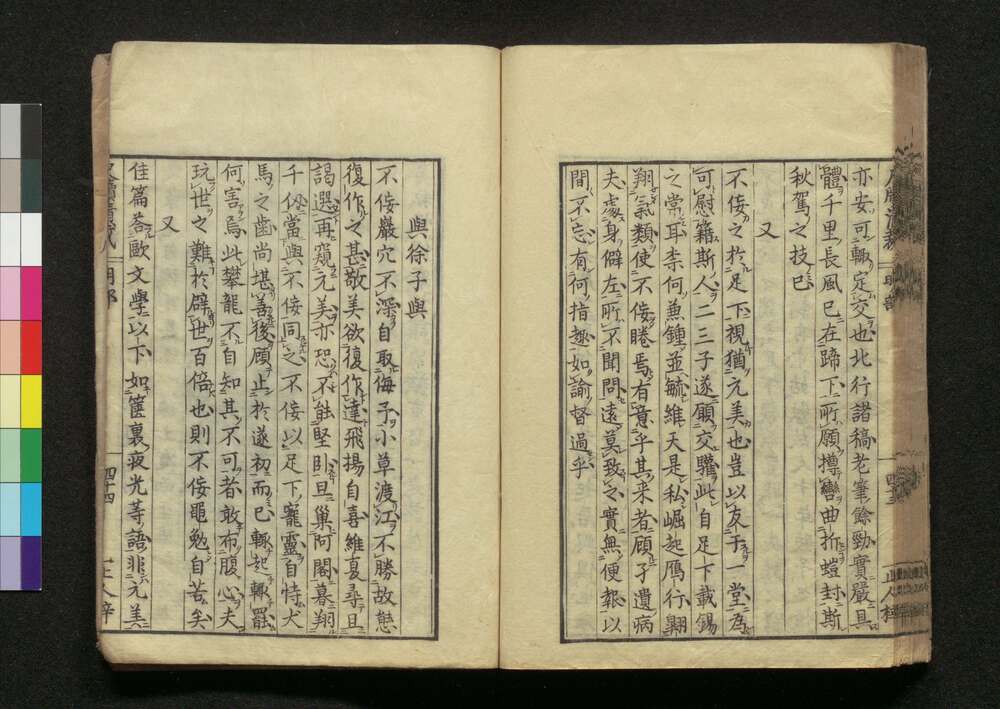 亦安可輙定交也北行諸稿老筆餘勁實嚴具
體千里長風已在蹄下所願摶巒曲折螘封斯
秋駕之技已
又
不佞之於足下視猶元美也豈以友于一堂為
可慰籍斯人二三子遂願交驩此自足下載錫
之常耳柰何兼鍾並毓維天是私崛起鴈行翺
翔氣類使不佞勝焉有意乎其来者顧孑遺病
夫處身僻左所不聞問遠莫致之實無便報以
間不忘有何指趣如諭督過乎
與徐子與
不佞嚴穴不深自取侮予小草渡江不勝故態
復作之甚敬美欲復作達飛揚自喜維夏尋且
謁選再窺元美亦恐不能堅卧旦巢阿閣暮翔
千仭當與不佞同之不佞以足下寵靈自恃犬
馬之齒尚堪善後顧止於遂初而已輙起輙罷
何害焉此攀龍不自知其不可者敢布腹心夫
玩世之難於辟世百倍也則不佞黽勉自苦矣
又
佳篇荅歐文學以下如篋裏夜光等語非元美
四十四